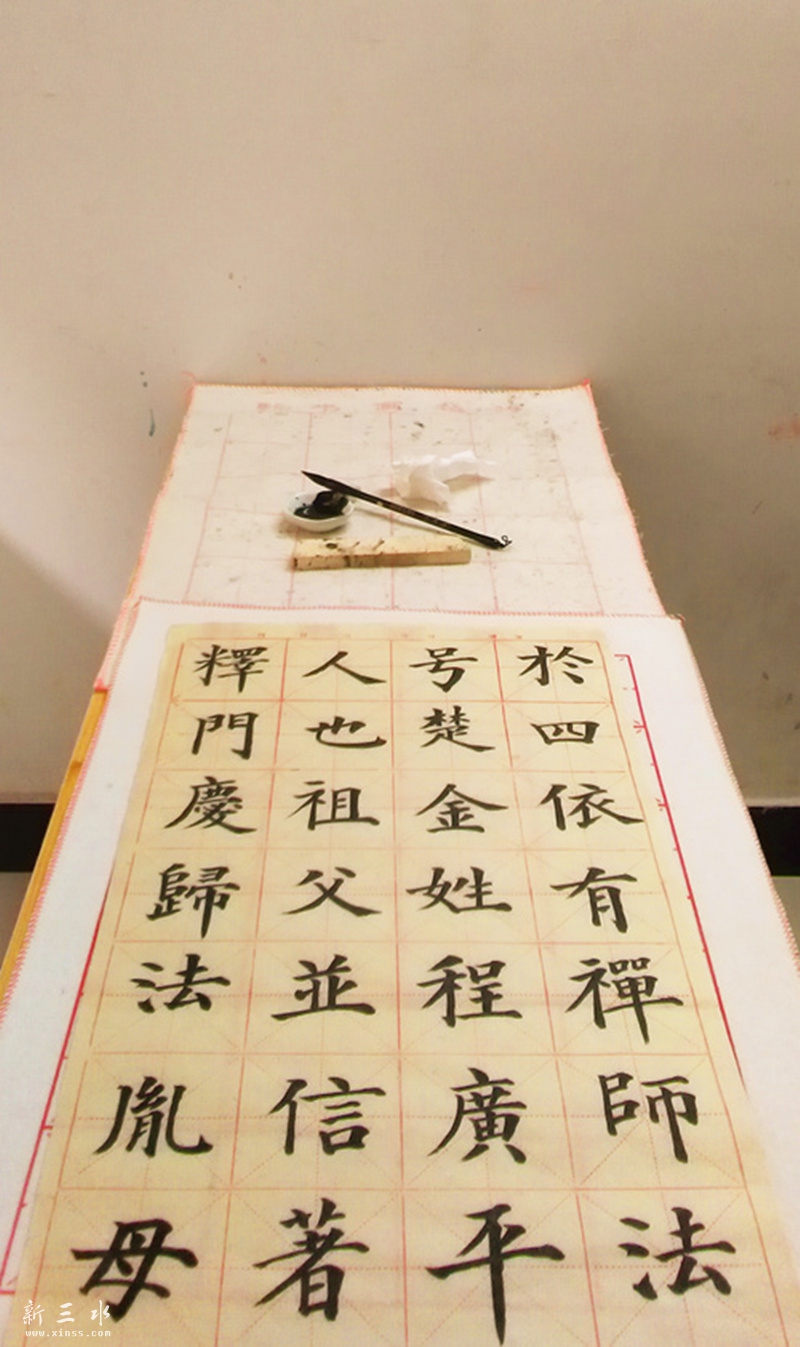 於四依有禪師法
号楚金姓程廣平
人也祖父並信著
釋門慶歸法胤母
新三水
www.xinss.com